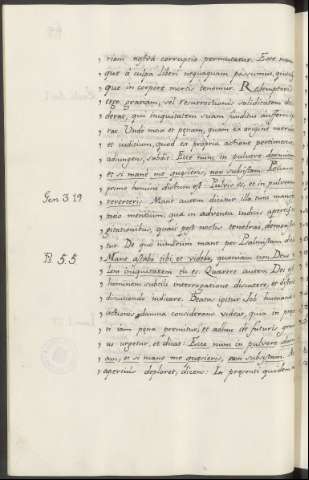 , riam nostra corruptio permutatur. Esse nam
, que à culpa liberi nequaquam possumus, quous
, que in corpore mortis tenemur. Redemptoris
, ergo gratiam, vel resurrectionis soliditatem de
, derat, qui iniquitatem suam funditus auferri
, rat. Unde mox et pœnam, quam ex origine meruit
, et iudicium, quod ex propria actione pertimescit
, adiungens, subdit: Ecce nunc in pulvere dormiam
, et si mane me quæsieris, non subsistam.
, primo homini dictum est Pulvis es, et in pulverem
Gen. 3. 19
, reverteris. Mane autem dicitur illa tunc mani
, mentium, quæ in adventu iudicis apertis
, cogitationibus, quasi post noctis tenebras, demonstra
, tur. De quo nimirum mane per Psalmistam dici
Ps. 5. 5
, Mane astabo tibi, et videbo, quoniam non Deus
, lens iniquitatem tu es. Quærere autem Dei est
, hominem subtili interrogatione discutere, et districte
, discutiendo iudicare. Beatus igitur Job humanæ
, actiones considerans videat, quia in præsen
, ti iam pœna premitur, et adhuc de futuris
, us urgetur, et dicat: Ecce nunc in pulvere dormi
, am, et si mane me quæsieris, non subsistam. Ac
, apertius deploret, dicens: In præsenti quidem